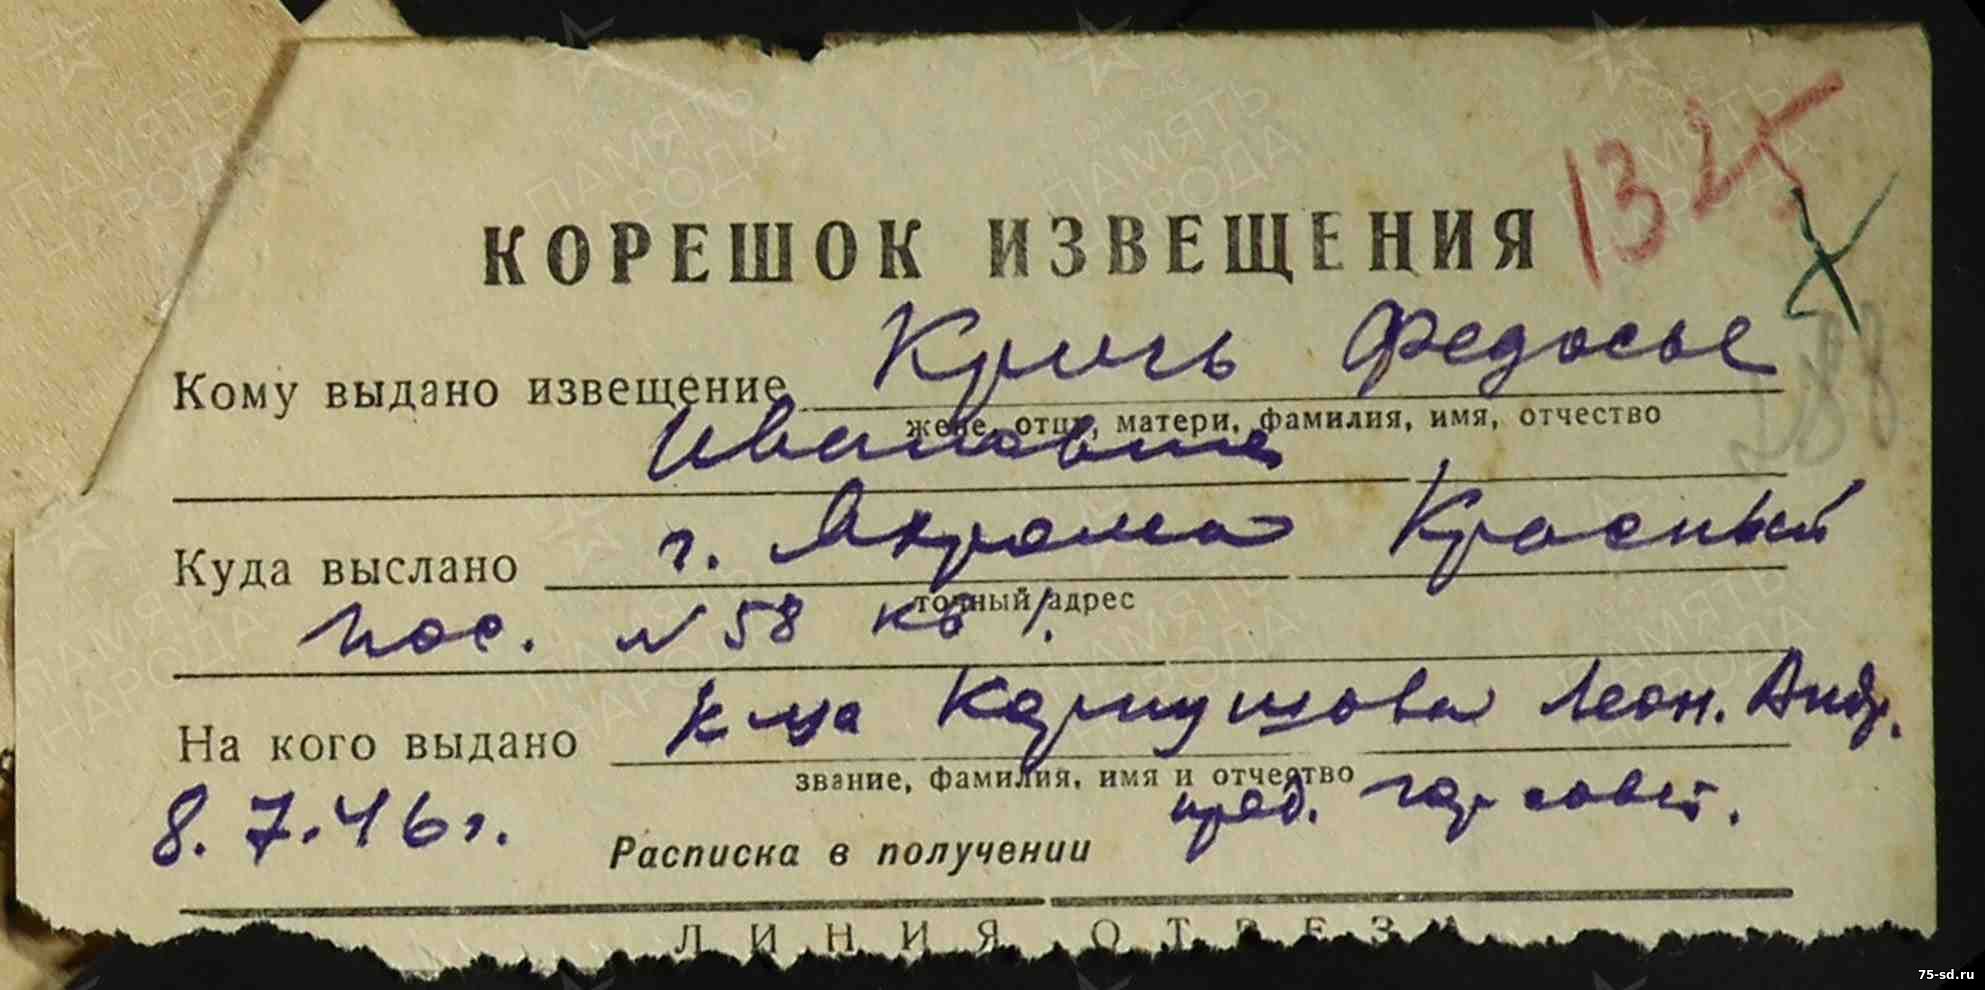 1325
КОРЕШОК ИЗВЕЩЕНИЯ
Кому выдано извещение Кричь Федосье
жене, отцу, матери, фамилия, имя, отчество
Ивановне
288
Куда выслано г. Яхрома Красный
точный адрес
пос. N 58 кв 1.
На кого выдано к-ца Картушова Леон. Андр.
звание, фамилия, имя и отчество
8.7.46 г. Расписка в получении пред. горсовет.
ЛИНИЯ ОТРЕЗА
ПАМЯТЬ НАРОДА
75-sd.ru